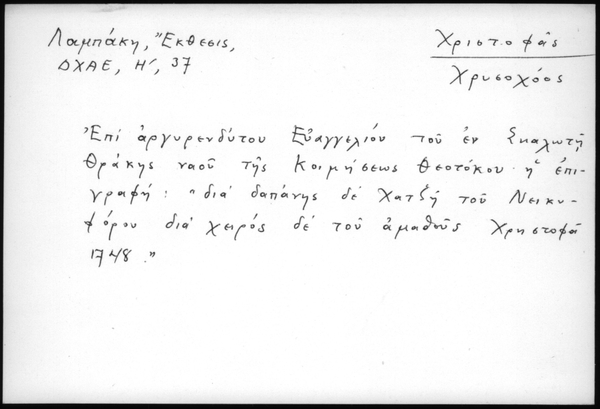 Λαμπάκη, Ἔκθεσις,
ΔΧΑΕ, Η΄, 37
Χριστοφᾶς
Χρυσοχόος
Ἐπί ἀργυρενδύτου Εὐαγγελίου τοῦ ἐν Σκαλωτῇ
Θράκης ναοῦ τῆς Κοιμήσεως Θεοτόκου ἡ ἐπι-
γραφή: "διά δαπάνης δέ Χατζῆ τοῦ Νεικυ-
φόρου διά χειρός δέ τοῦ ἀμαθοῦς Χρηστοφᾶ
1748."